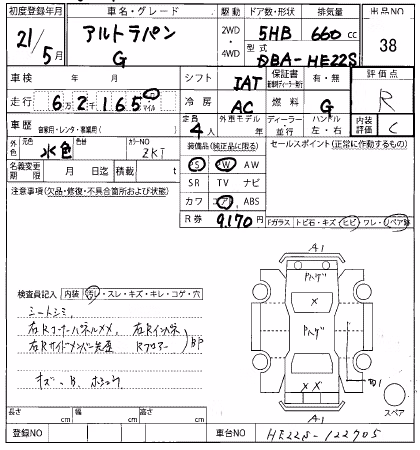 初度登録年月 車名・グレード 駆動 ドア数・形状 排気量 出品NO
21/5月 アルトラパン G 2WD・4WD 5HB 660cc 38
型式 DBA-HE22S
車検 年 月 シフト IAT 保証書 有・無 評価点
走行 62165 マイル 冷房 AC 燃料 G R
車歴 自家用・レンタ・事業用( ) 定員 4人 外車モデル 年 ディーラー 並行 ハンドル 左・右 内装評価 C
外色 元色 水色 色替 カラーNO ZKT
装備品(純正品に限る) セールスポイント(正常に作動するもの)
名義変更期限 月 日迄 積載 t
PS PW AW
SR TV ナビ
カワ エアB ABS
注意事項(欠品・修復・不具合箇所および状態)
R券 9,170円
Fガラス トビ石・キズ・ヒビ・ワレ・リペア跡
検査員記入 内装 汚レ・スレ・キズ・キレ・コゲ・穴
シートシミ
右Rコーナーパネルメメ、右Rインパネ
右Rサイドメンバー先座 Rフロアー BP
キズ B
A1
Pハゲ
X
Pハゲ
XX
A1
スペア
長さ cm 幅 cm 高さ cm
登録NO 車台NO HE22S-122705